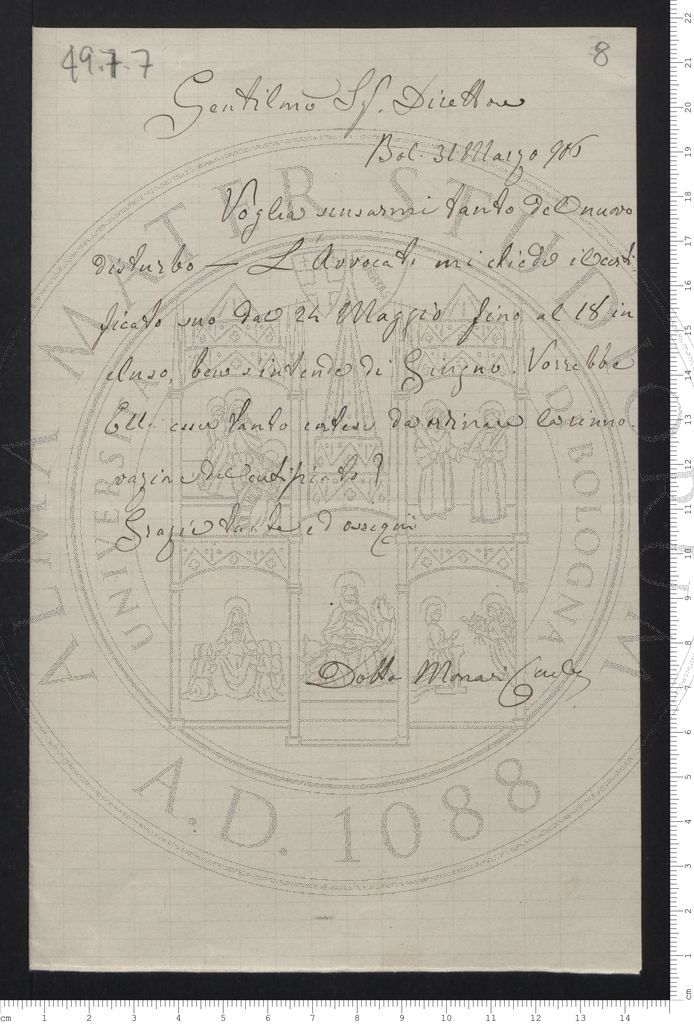 49.7.7
8
Gentilmo Sg. Direttore
Bol. 31 Marzo 905
Voglia scusarmi tanto del nuovo
disturbo — L'Avvocato mi chiede il certi
ficato suo dal 24 Maggio fino al 18 in
cluso, ben s'intende di Giugno. Vorrebbe
Ella esser tanto cortese da ordinare la rinno-
vazione del certificato?
Grazie tante ed ossequi
Dotto Monari Carlo
ALMA MATER STUDIORUM
UNIVERSITÀ DI BOLOGNA
A.D. 1088